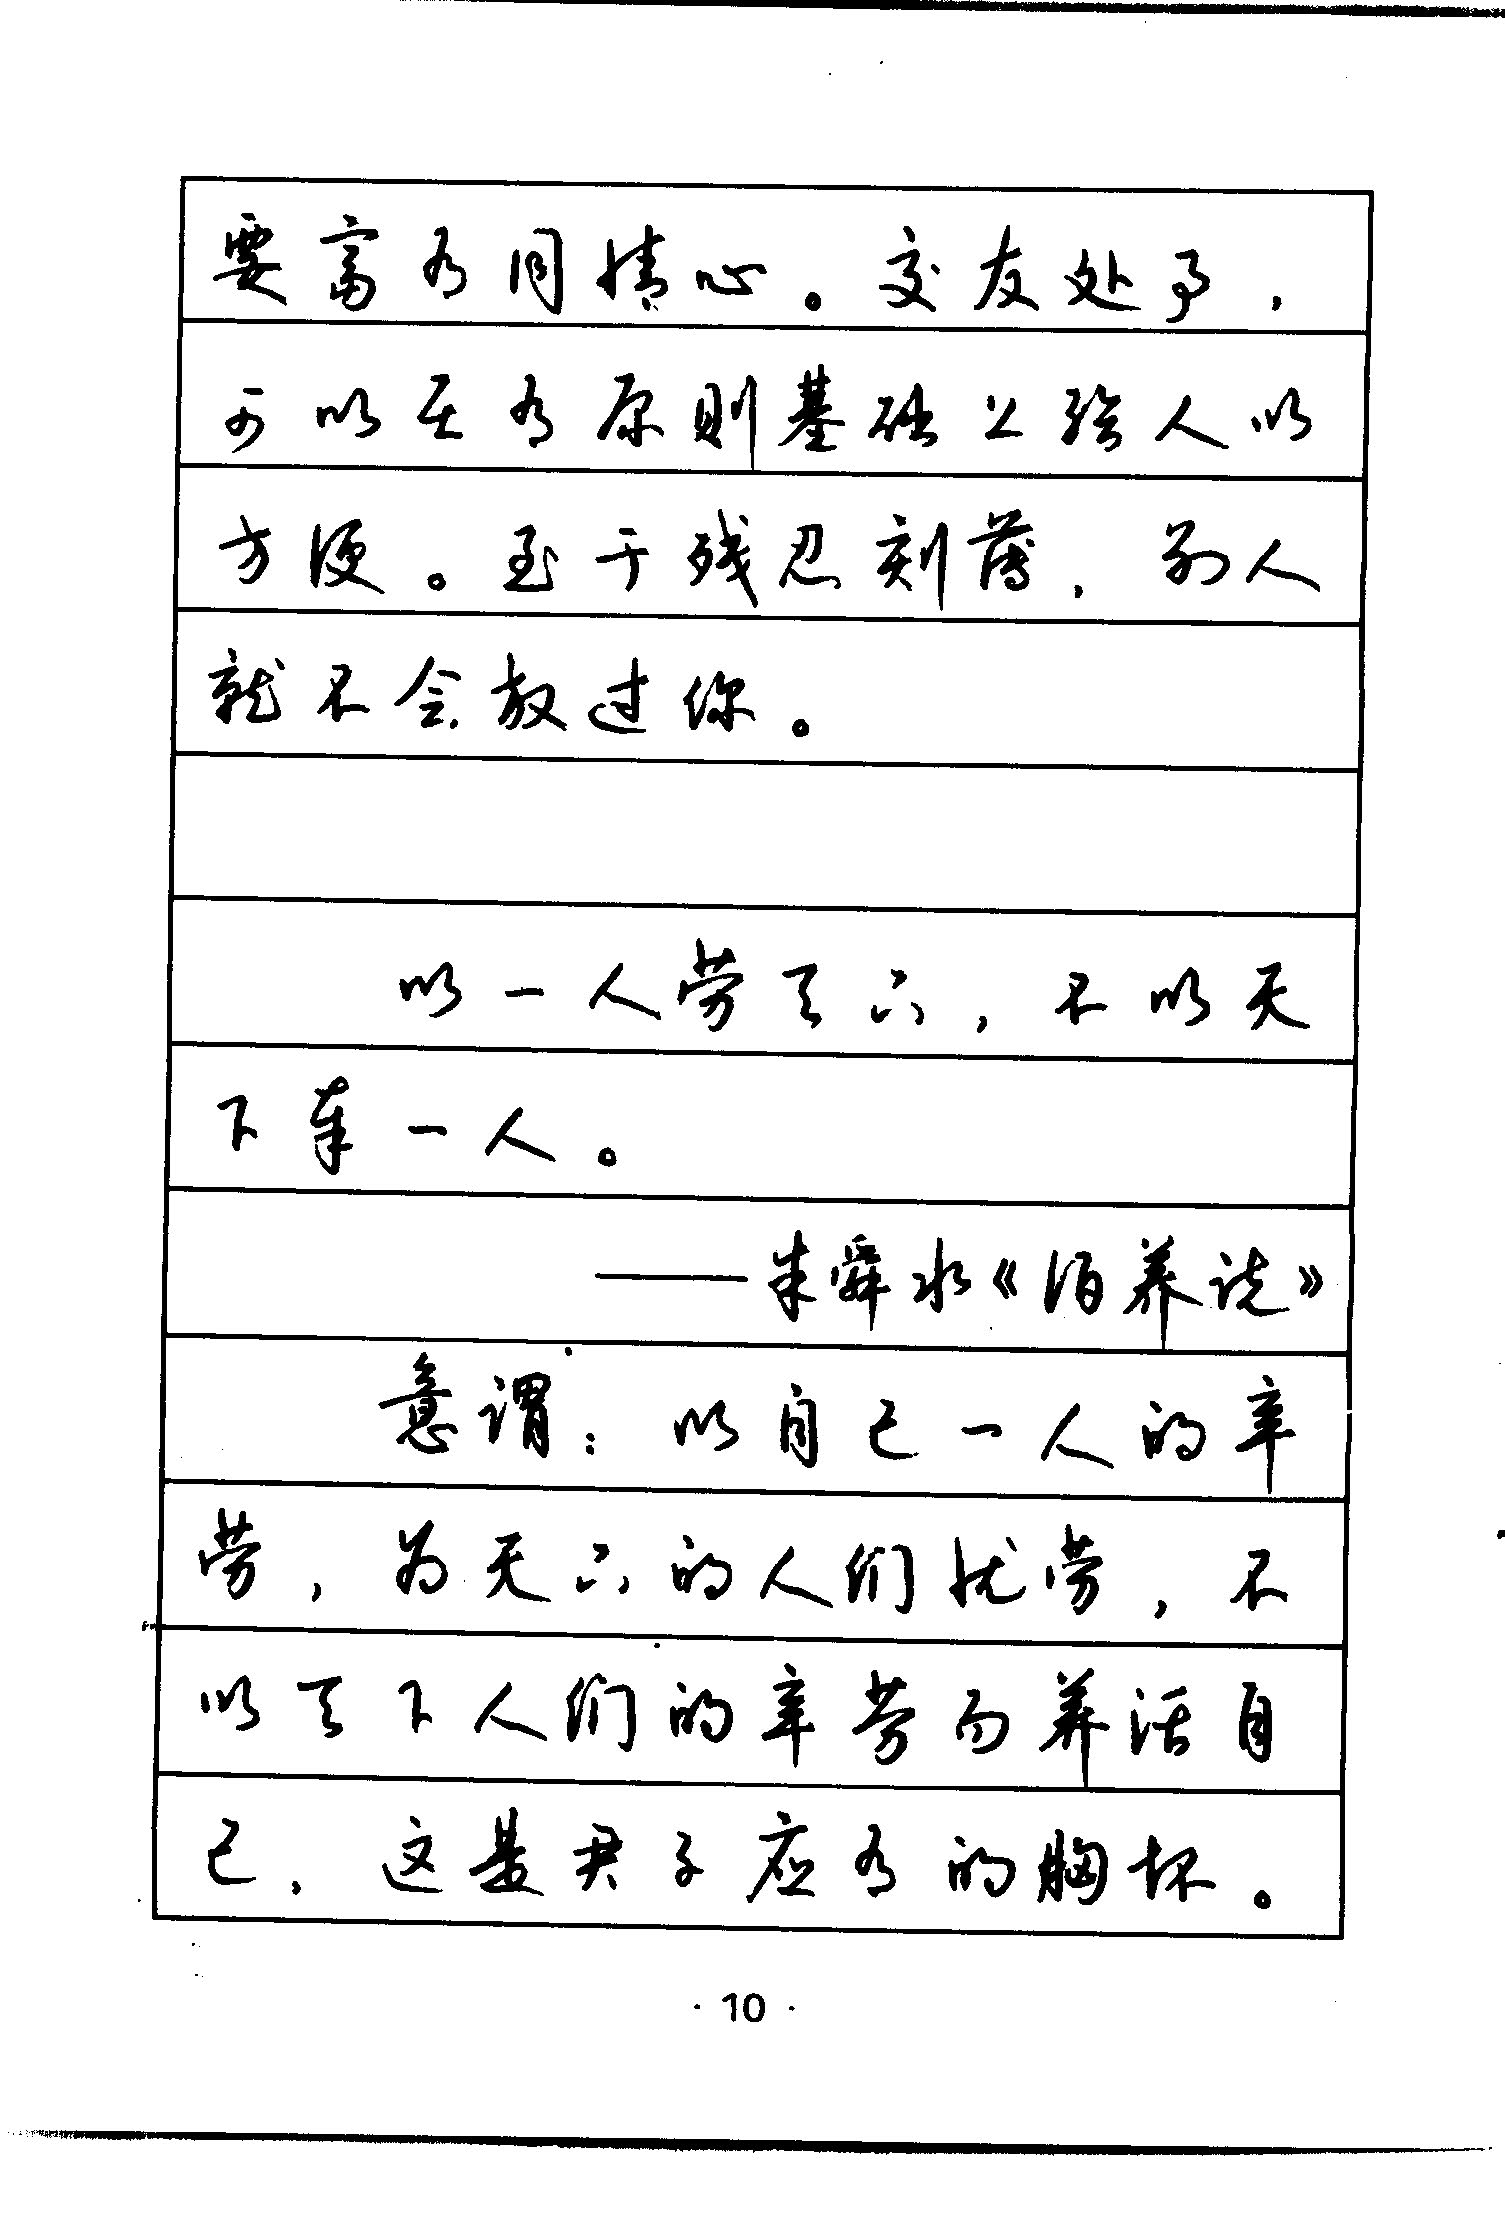 要富有同情心。交友处事，
可以在有原则基础上给人以
方便。至于残忍刻薄，别人
就不会放过你。
以一人劳天下，不以天
下奉一人。
——朱舜水《伯养说》
意谓：以自己一人的辛
劳，为天下的人们忧劳，不
以天下人们的辛劳而养活自
己，这是君子应有的胸怀。
· 10 ·